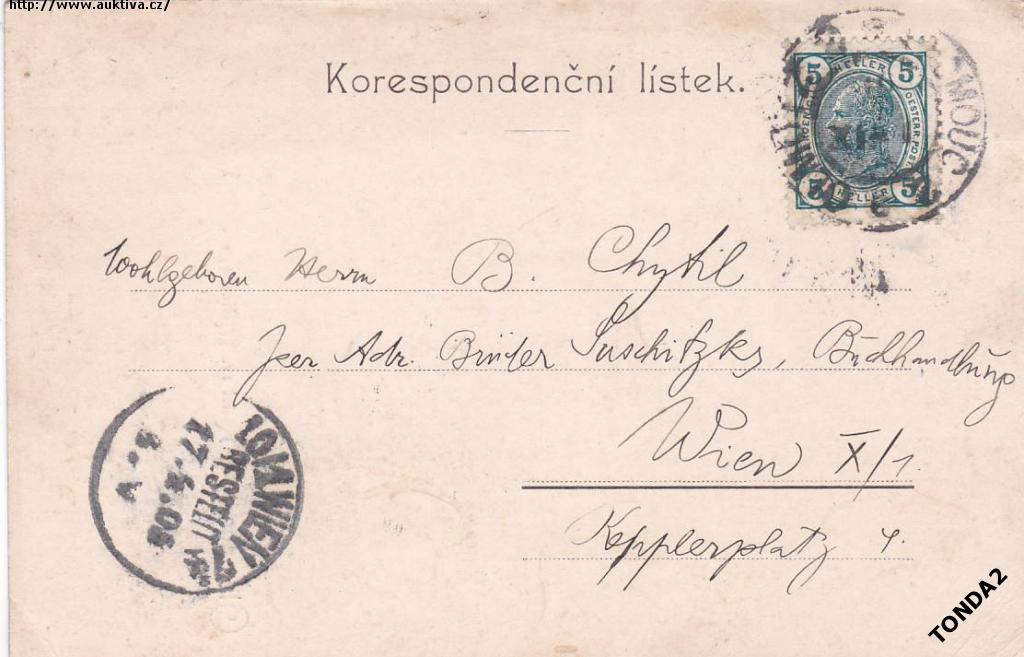 http://www.auktiva.cz/
Korespondenční lístek.
5 HELLER 5
5 HELLER 5
Wohlgeboren Herrn B. Chytil
per Adr. Binder Suschitzky, Buchhandlung
Wien X/1.
Kepplerplatz 4.
10/1 WIEN
BESTELLT
17. 08
TONDA2